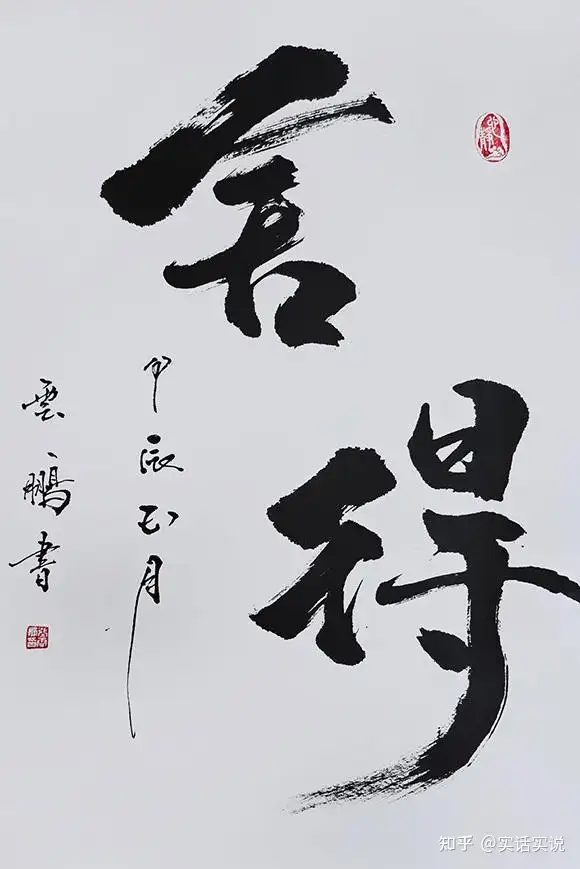 舍得
甲辰正月
雲鵬書
知乎 @实话实说